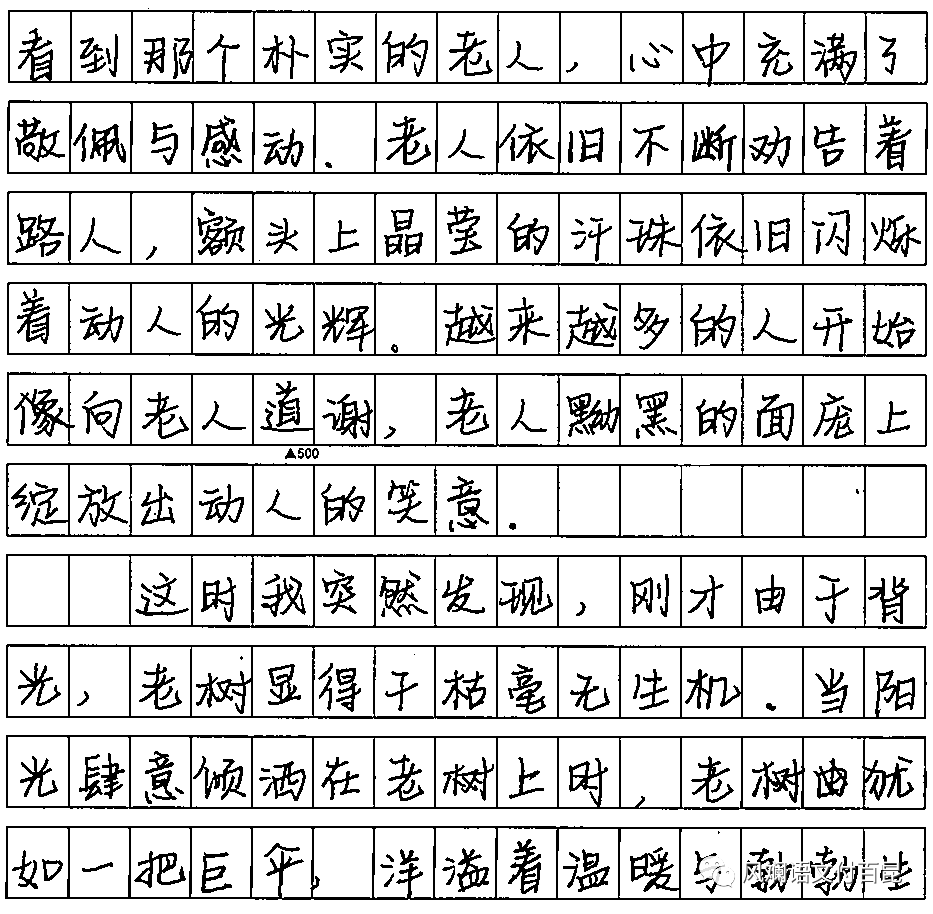 看到那个朴实的老人，心中充满了
敬佩与感动．老人依旧不断劝告着
路人，额头上晶莹的汗珠依旧闪烁
着动人的光辉。越来越多的人开始
像向老人道谢，老人黝黑的面庞上
▲500
绽放出动人的笑意．
这时我突然发现，刚才由于背
光，老树显得干枯毫无生机．当阳
光肆意倾洒在老树上时，老树由犹
如一把巨伞，洋溢着温暖与勃勃生
风斓语文付百昆